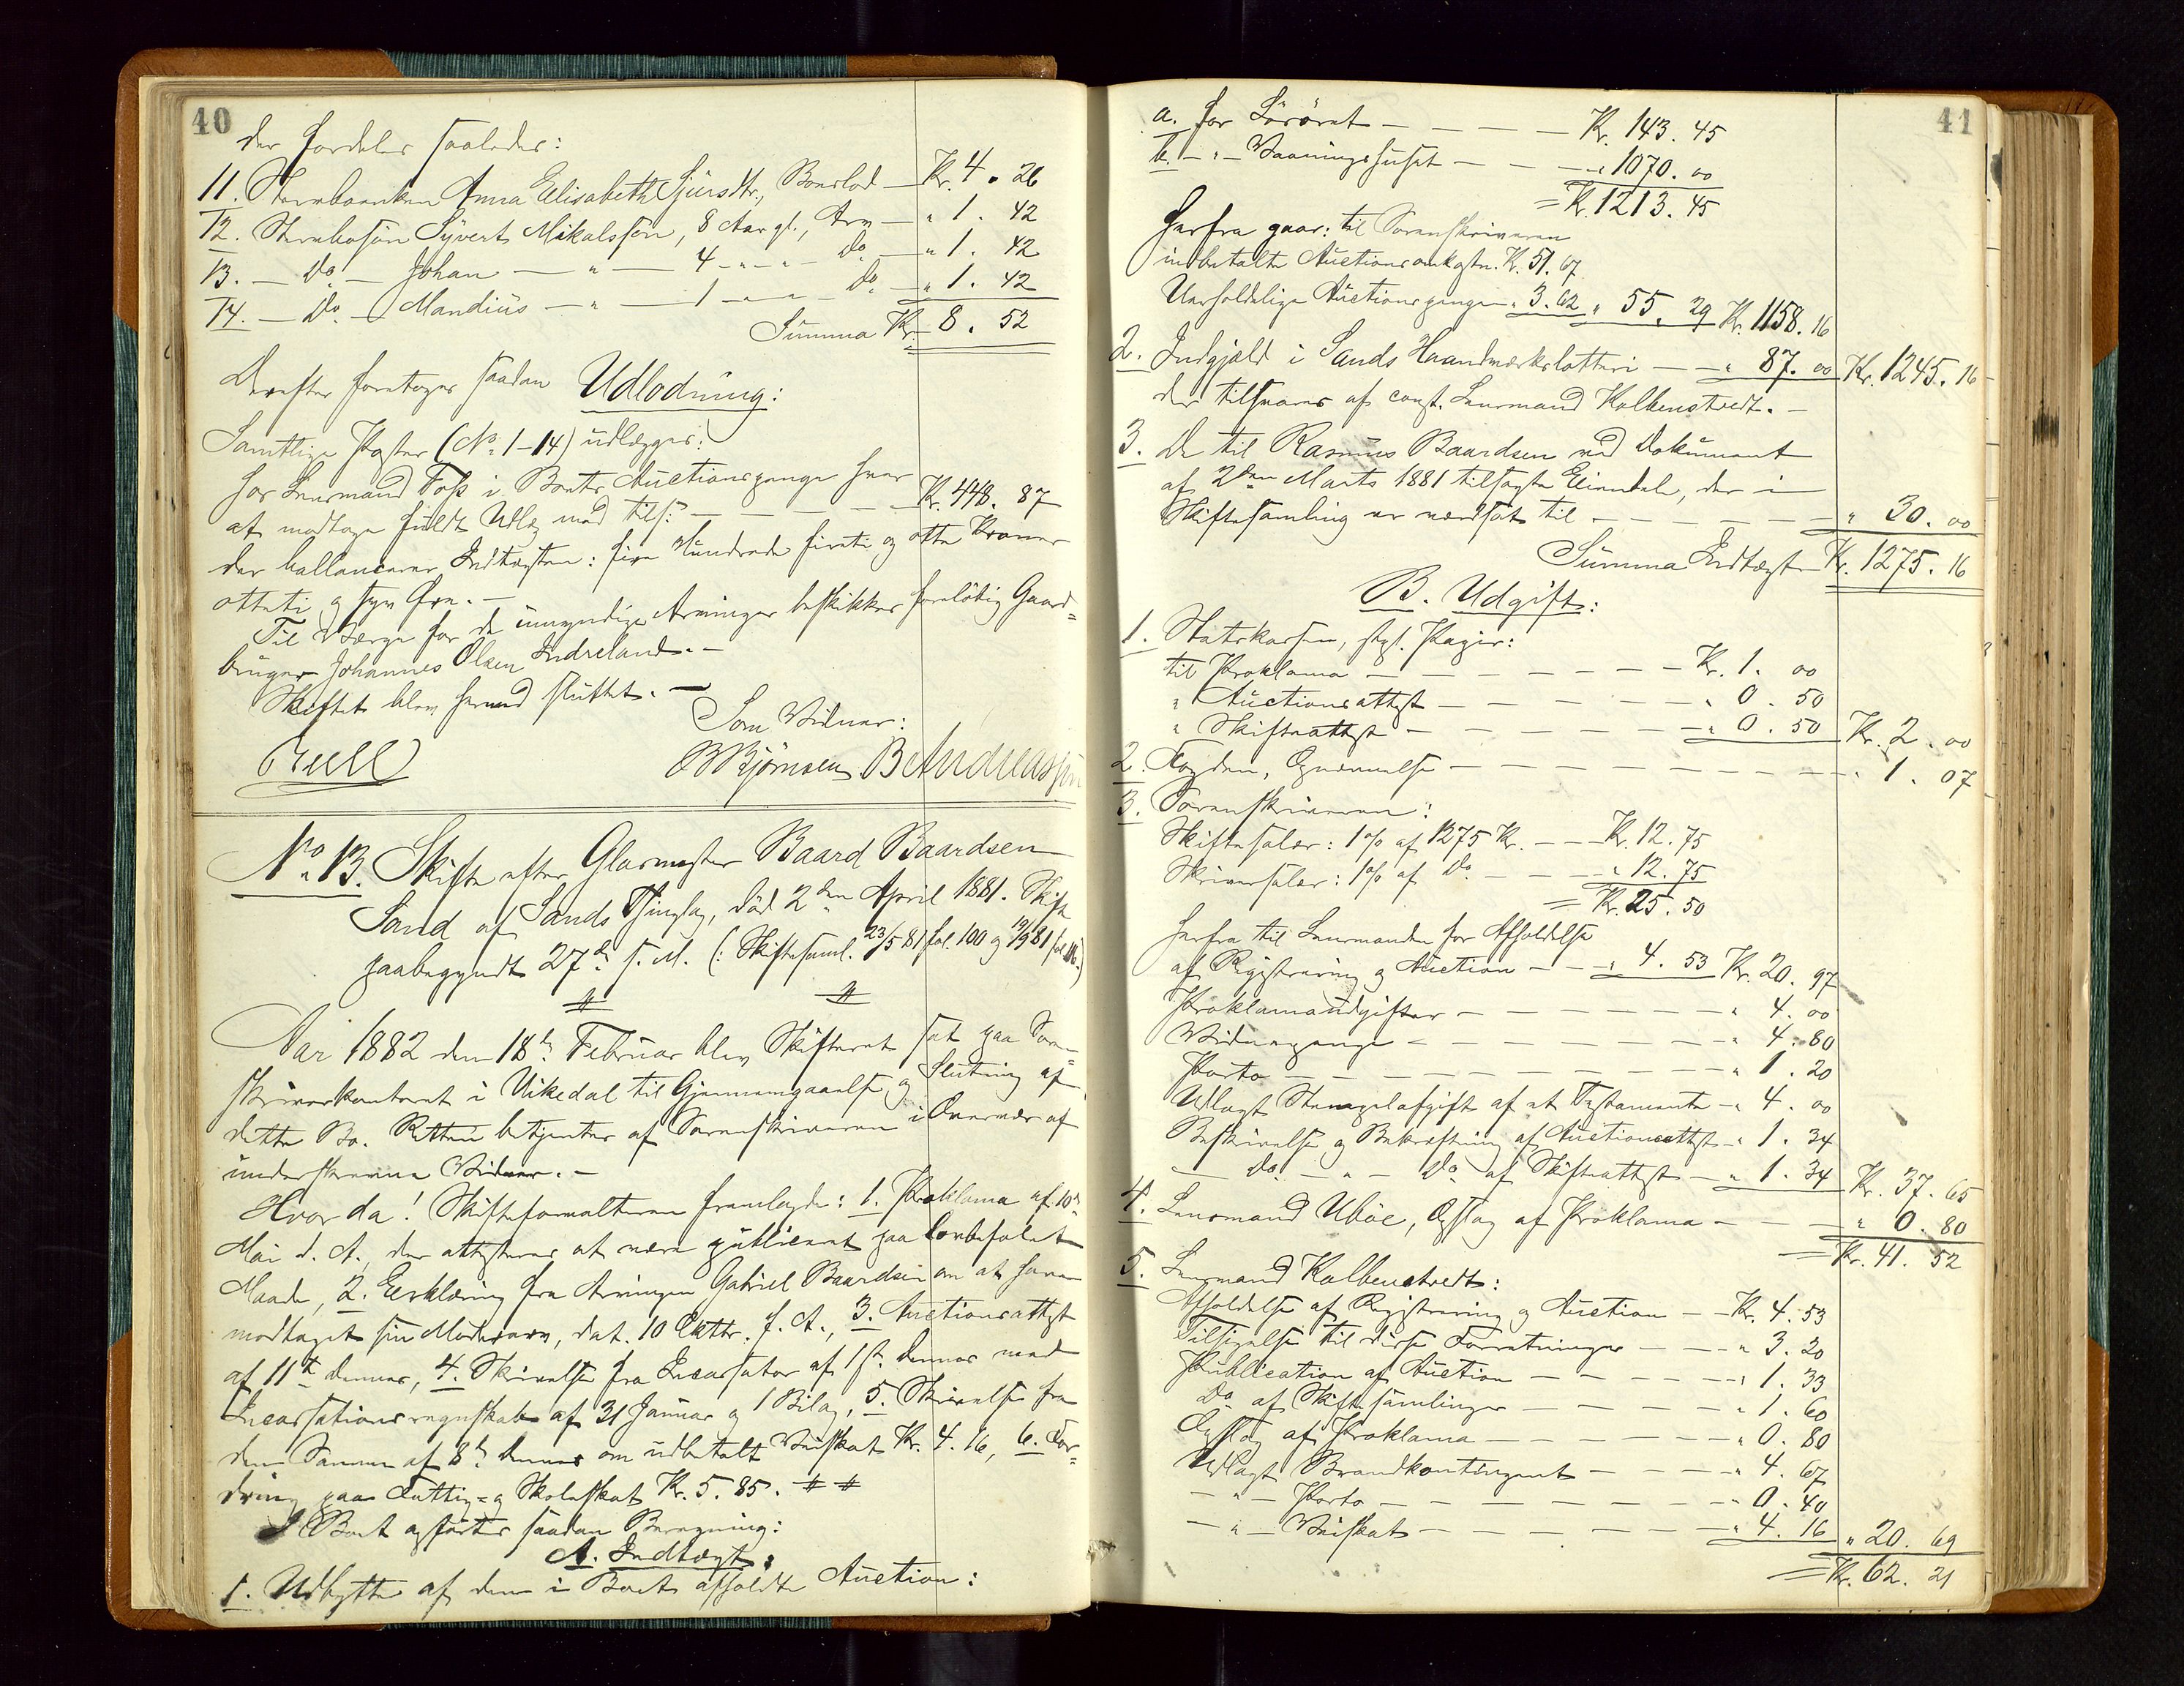 40
der fordeles saaledes:
11. Stervboenken Anna Elisabeth Sjursdtr., Boeslod — Kr. 4. 26
12. Stervbosøn Syvert Mikalssøn, 8 Aar gl., Arv — " 1. 42
13. — Do — Johan — " — 4 - " - " - Do — " 1. 42
14. — Do — Mandius — " — 1 — " - Do — " 1. 42
Summa Kr. 8. 52
Derefter foretoges saadan Udlodning:
Samtlige Poster (No. 1-14) udlægges:
hos Lensmand Foss i Boets Auctionspenge hver
at modtage fuldt Udlæg med tils. — — — — Kr. 448. 87
der ballancerer Indtægten: fire Hundrede fireti og otte Kroner
otteti og syv Øre. —
Til Værge for de umyndige Arvinger beskikkes foreløbig Gaard=
bruger Johannes Olsen Indreland. —
Skiftet blev hermed sluttet. —
Som Vidner:
Juell
B Bjørnsen B Andreassen
No. 13. Skifte efter Glarmester Baard Baardsen
Sand af Sands Thinglag, død 2den April 1881. Skifte
paabegyndt 27de s. M. (: Skiftesaml. 23/5 81 fol. 100 og 19/9 81 fol.
Aar 1882 den 18de Februar blev Skifteret sat paa Soren=
skriverkontoret i Vikedal til Gjennemgaaelse og Slutning af
dette Bo. Retten betjentes af Sorenskriveren i Overvær af
underskrevne Vidner. —
Hvor da! Skifteforvalteren fremlagde: 1. Proklama af 10de
Mai d. A., der attesteres at være publiceret paa lovbefalet
Maade, 2. Erklæring fra Arvingen Gabriel Baardsen om at have
modtaget sin Mødrearv, dat. 10 Oktbr. f. A., 3. Auctionsattest
af 11te dennes, 4. Skrivelse fra Incassator af 1ste dennes med
Incassationsregnskab af 31 Januar og 1 Bilag, 5. Skrivelse fra
den Samme af 8de dennes om udbetalt Veiskat Kr. 4. 16, 6. For=
dring paa Fattig- og Skoleskat Kr. 5. 85.
I Boet opførtes saadan Beregning:
A. Indtægt:
1. Udbytte af den i Boet afholdte Auction:
41
a. for Løsøret — — — — Kr. 143. 45
b. — " — Vaaningshuset — — — " 1070. 00
= Kr. 1213. 45
Herfra gaar: til Sorenskriveren
indbetalte Auctionsomkostn. Kr. 51. 67
Uerholdelige Auctionspenge " 3. 62 " 55. 29 Kr. 1158. 16
2. Indgjæld i Sands Haandværkslotteri — — " 87. 00 Kr. 1245. 16
der tilsvares af const. Lensmand Kolbenstvedt. —
3. De til Rasmus Baardsen ved Dokument
af 2den Marts 1881 tilsagte Eiendele, der i
Skiftesamling er værdsat til — — — — — — " 30. 00
Summa Indtægt Kr. 1275. 16
B. Udgift:
1. Statskassen, stpl. Papir:
til Proklama — — — — — — Kr. 1. 00
" Auctionsattest — — — — — " 0. 50
" Skifteattest — — — — — " 0. 50 Kr. 2. 00
2. Fogden, Opnævnelse — — — — — — — " 1. 07
3. Sorenskriveren:
Skiftesalær: 1% af 1275 Kr. — — Kr. 12. 75
Skriversalær: 1% af Do — — — " 12. 75
= Kr. 25. 50
Herfra til Lensmanden for Afholdelse
af Registrering og Auction — — " 4. 53 Kr. 20. 97
Proklamaudgifter — — — — — — " 4. 00
Vidnepenge — — — — — — " 4. 80
Porto — — — — — — — " 1. 20
Udlagt Stempelafgift af et Testamente — " 4. 00
Beskrivelse og Bekræftning af Auctionsattest — " 1. 34
— Do — " — Do af Skifteattest — " 1. 34 Kr. 37. 65
4. Lensmand Ubøe, Opslag af Proklama — — — " 0. 80
= Kr. 41. 52
5. Lensmand Kolbenstvedt:
Afholdelse af Registrering og Auction — — Kr. 4. 53
Tilsigelse til disse Forretninger — — — " 3. 20
Publication af Auction — — — — — " 1. 33
Do af Skiftesamlinger — — — — " 1. 60
Opslag af Proklama — — — — — " 0. 80
Udlagt Brandkontingent — — — — " 4. 67
— " — Porto — — — — — — " 0. 40
— " — Veiskat — — — — — — " 4. 16 " 20. 69
= Kr. 62. 21